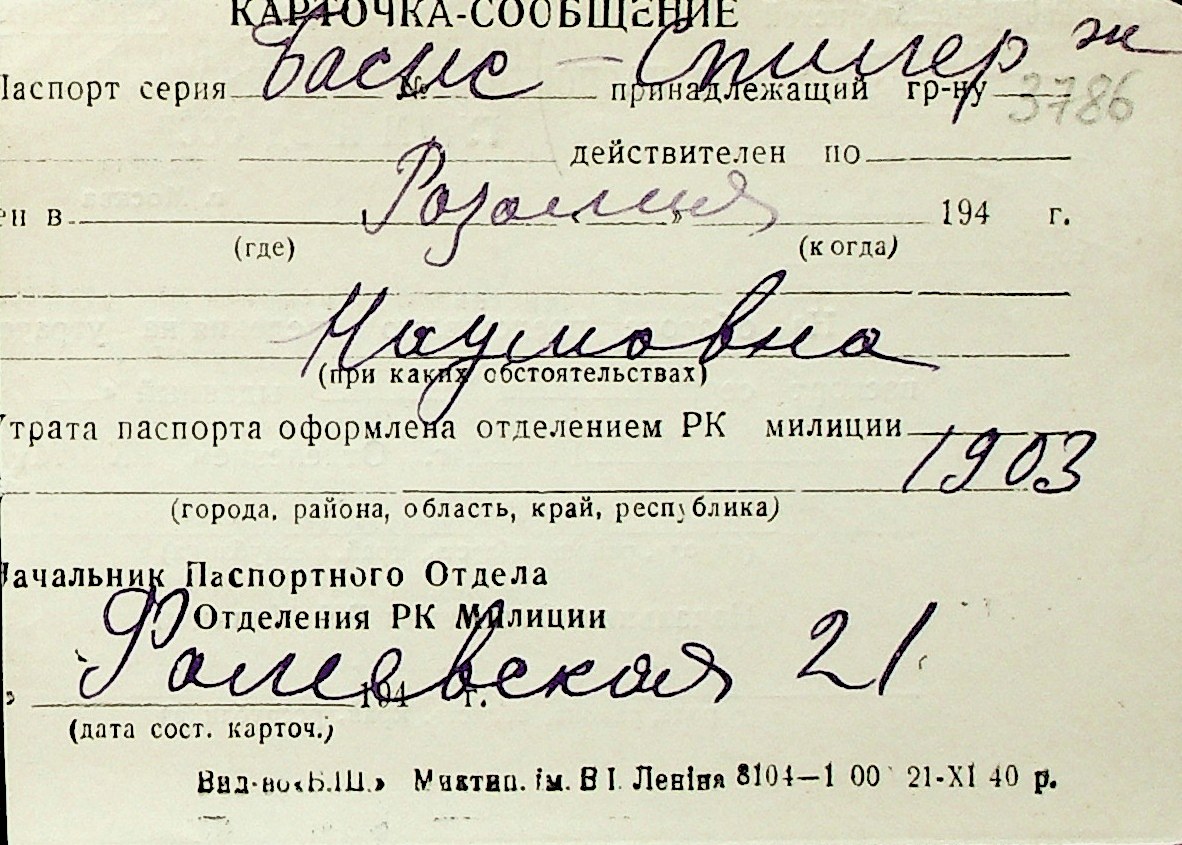 КАРТОЧКА-СООБЩЕНИЕ
Басис - Спигер ж
Паспорт серия № принадлежащий гр-ну 3786
действителен по
ен в Розалия « » 194 г.
(где) (когда)
Наумовна
(при каких обстоятельствах)
Утрата паспорта оформлена отделением РК милиции
1903
(города, района, область, край, республика)
Начальник Паспортного Отдела
Отделения РК Милиции
Фалеевская 21
194 г.
(дата сост. карточ.)
Вид-во «Б.Ш.» Миктип. ім. В І. Леніна 8104—1 00 21-XI 40 р.